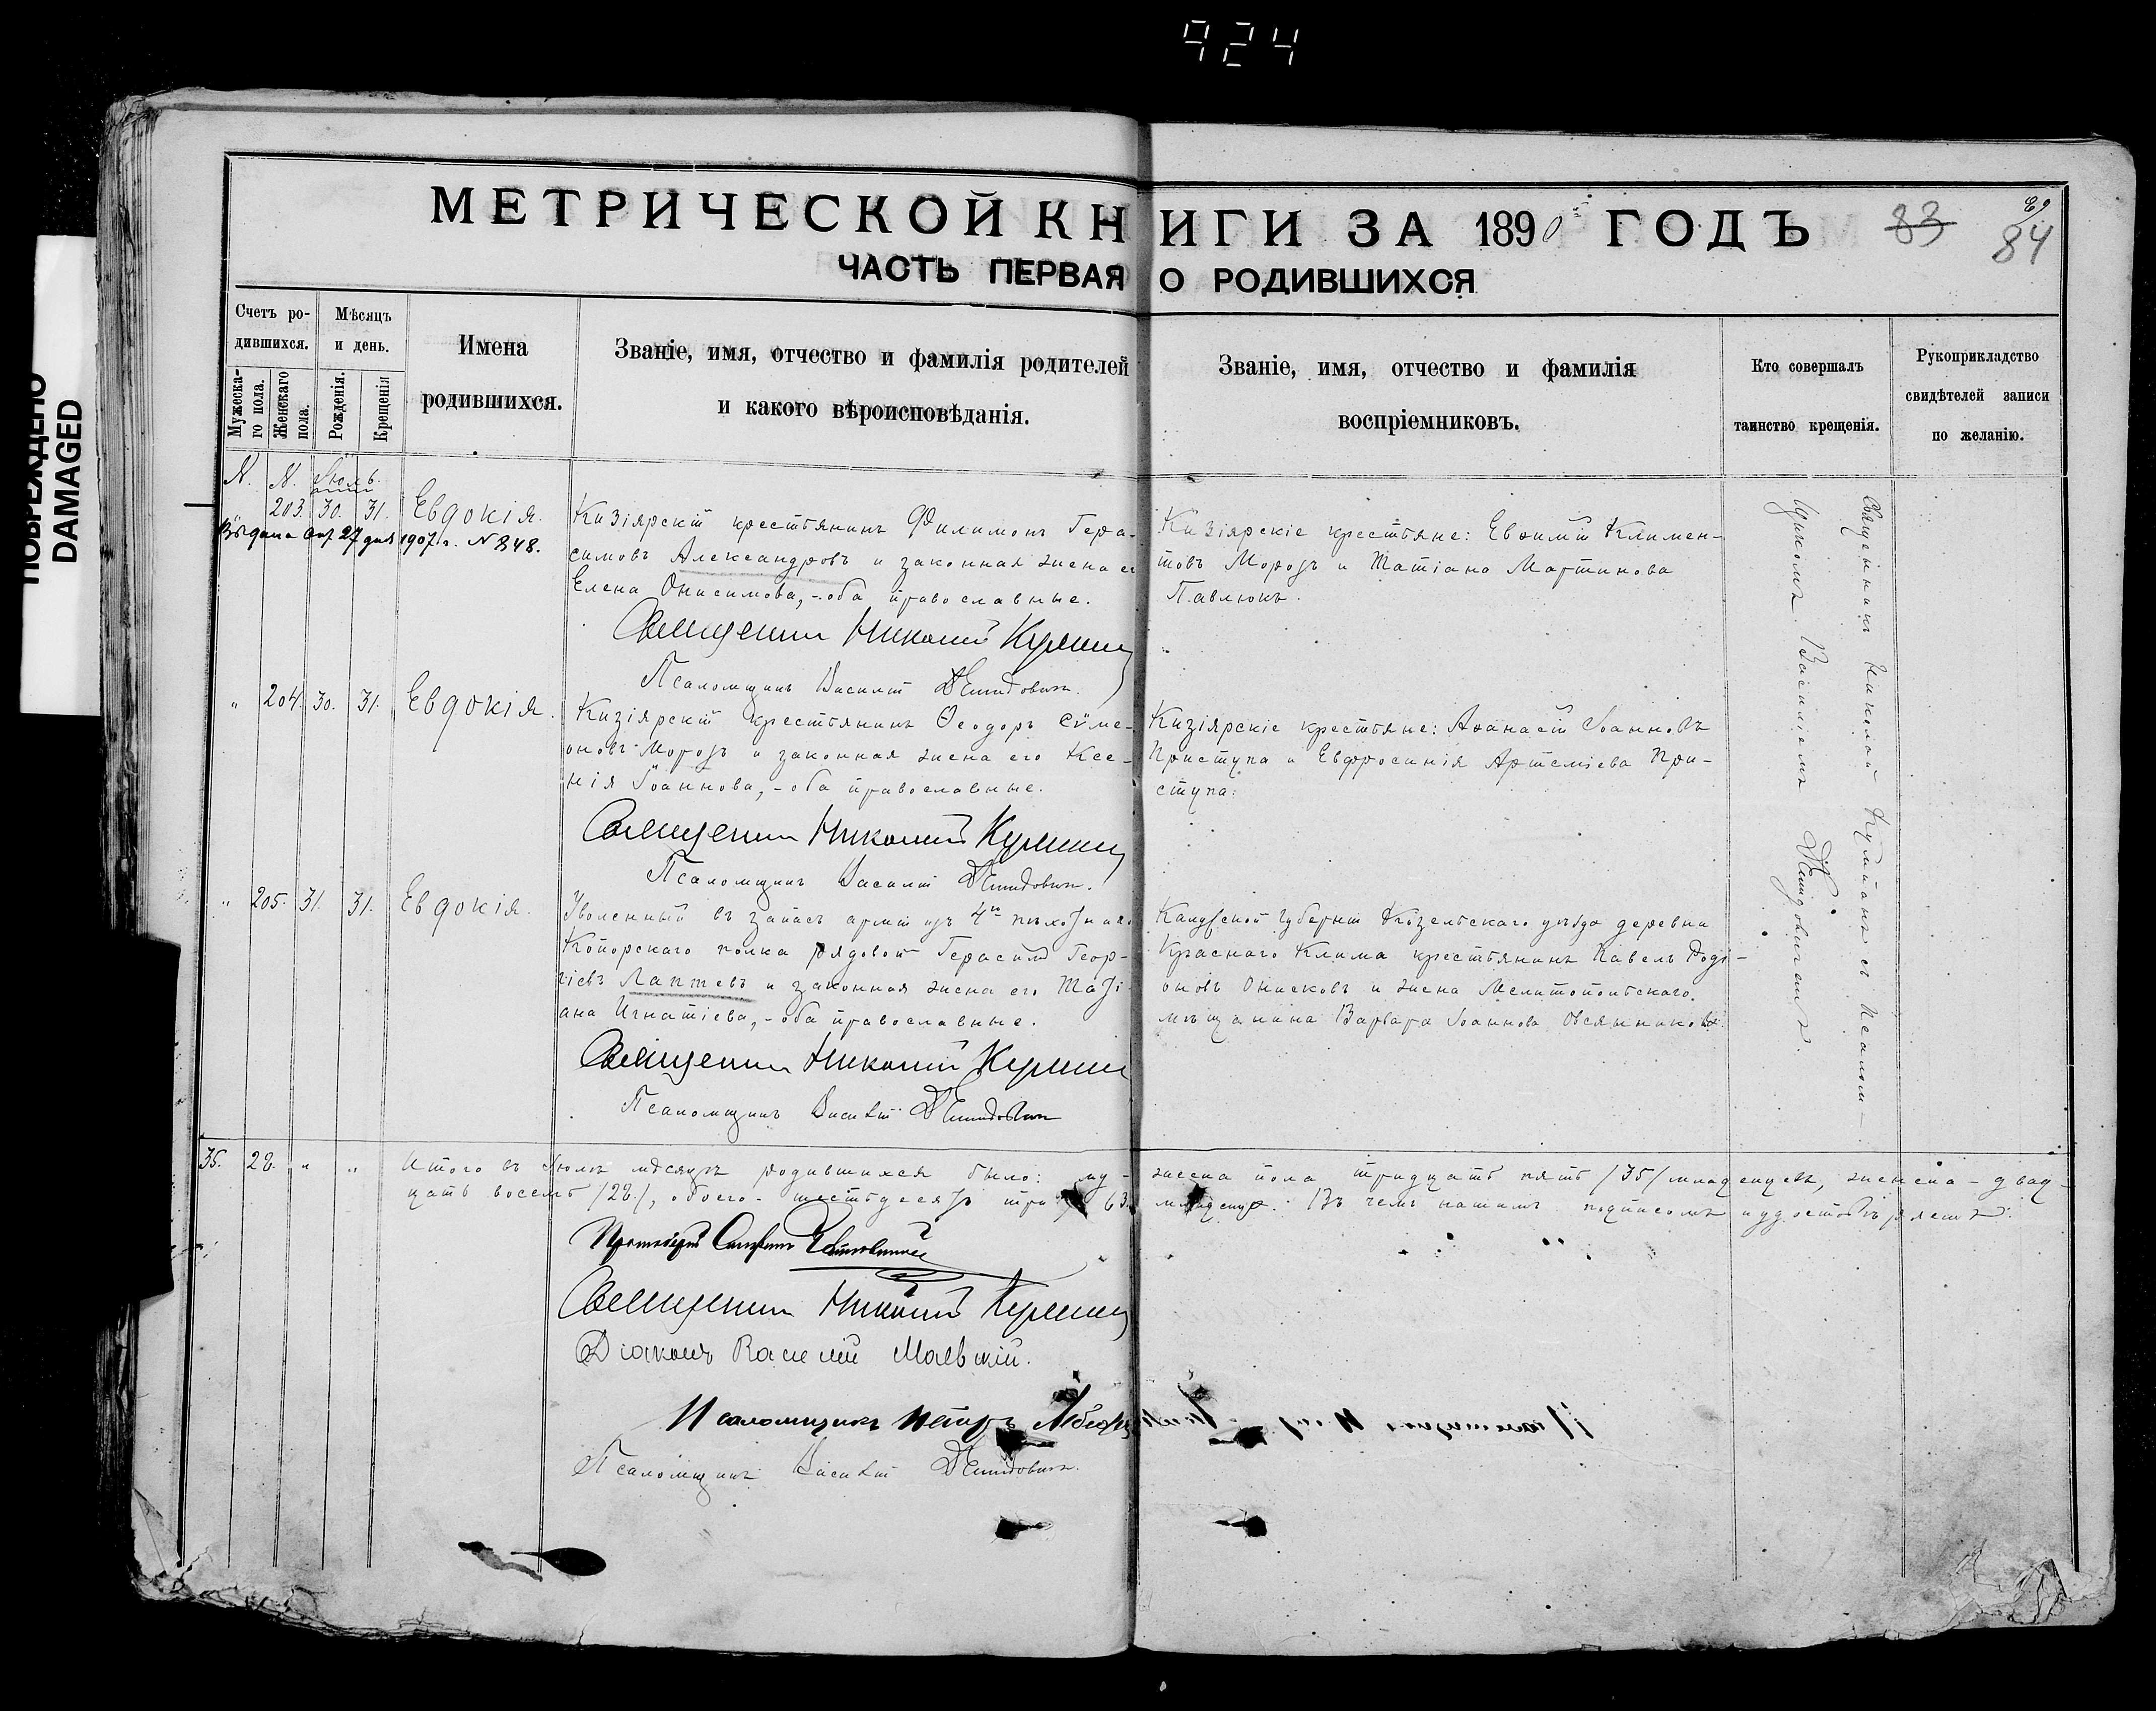 924
ПОВРЕЖДЕНО
DAMAGED
МЕТРИЧЕСКОЙ КНИГИ ЗА 1890 ГОДЪ
83
84
ЧАСТЬ ПЕРВАЯ О РОДИВШИХСЯ
Счетъ ро-
дившихся.
Мужеска-
го пола.
Женскаго
пола.
Мѣсяцъ
и день.
Рожденія.
Крещенія
Имена
родившихся.
Званіе, имя, отчество и фамилія родителей
и какого вѣроисповѣданія.
Званіе, имя, отчество и фамилія
воспріемниковъ.
Кто совершалъ
таинство крещенія.
Рукоприкладство
свидѣтелей записи
по желанію.
N. N. Іюль.
203. 30. 31. Евдокія.
Выдана Апр. 27 дня 1907 г. N 848.
Кизіярскій крестьянинъ Филимонъ Гера-
симовъ Александровъ и законная жена его
Елена Онисимова, - оба православные.
Священникъ Николай
Псаломщикъ Василій Демидовичъ.
Кизіярскіе крестьяне: Евѳимій Климен-
товъ Морозъ и Татіана Мартинова
Павлюкъ.
" 204. 30. 31. Евдокія.
Кизіярскій крестьянинъ Ѳеодоръ Сѵме-
оновъ Морозъ и законная жена его Ксе-
нія Іоаннова, - оба православные.
Священникъ Николай
Псаломщикъ Василій Демидовичъ.
Кизіярскіе крестьяне: Аѳанасій Іоанновъ
Приступа и Евфросинія Артеміева При-
ступа.
" 205. 31. 31. Евдокія.
Уволенный въ запасъ арміи изъ 4го пѣхотнаго
Копорскаго полка рядовой Герасимъ Геор-
гіевъ Лаптевъ и законная жена его Таті-
ана Игнатіева, - оба православные.
Священникъ Николай
Псаломщикъ Василій Демидовичъ
Калужской губерніи Козельскаго уѣзда деревни
Краснаго Клина крестьянинъ Павелъ Роді-
оновъ Онисковъ и жена Мелитопольскаго
мѣщанина Варвара Іоаннова Овсянникова.
Священникъ Николай съ Псалом-
щикомъ Василіемъ Демидовичемъ.
35. 28. " " Итого въ Іюлѣ мѣсяцѣ родившихся было: му-жеска пола тридцать пять /35/ младенцевъ, женска - двад-
цать восемь /28/, обоего - шестьдесятъ три 63 младенца. Въ чемъ нашимъ подписомъ и удостовѣряемъ.
Протоіерей
Священникъ Николай
Діаконъ Василій Маевскій.
Псаломщикъ Петръ
Псаломщикъ Василій Демидовичъ.